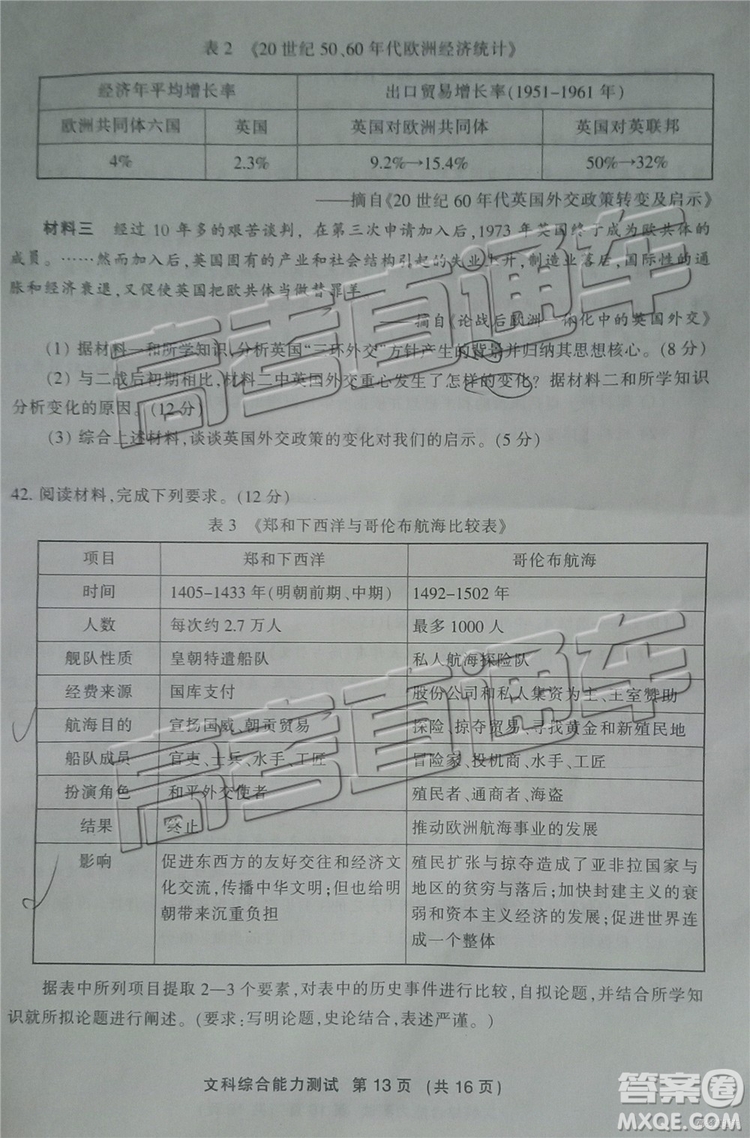 表 2 《20 世纪 50、60 年代欧洲经济统计》
经济年平均增长率 出口贸易增长率(1951-1961 年)
欧洲共同体六国 英国 英国对欧洲共同体 英国对英联邦
4% 2.3% 9.2%→15.4% 50%→32%
——摘自《20 世纪 60 年代英国外交政策转变及启示》
材料三 经过 10 年多的艰苦谈判，在第三次申请加入后，1973 年英国终于成为欧共体的
成员。……然而加入后，英国固有的产业和社会结构引起的失业上升，制造业落后，国际性的通
胀和经济衰退，又促使英国把欧共体当做替罪羊。
——摘自《论战后欧洲一体化中的英国外交》
(1) 据材料一和所学知识，分析英国“三环外交”方针产生的背景并归纳其思想核心。(8 分)
(2) 与二战后初期相比，材料二中英国外交重心发生了怎样的变化？据材料二和所学知识
分析变化的原因。(12 分)
(3) 综合上述材料，谈谈英国外交政策的变化对我们的启示。(5 分)
42. 阅读材料，完成下列要求。(12 分)
表 3 《郑和下西洋与哥伦布航海比较表》
项目 郑和下西洋 哥伦布航海
时间 1405-1433 年(明朝前期、中期) 1492-1502 年
人数 每次约 2.7 万人 最多 1000 人
舰队性质 皇朝特遣船队 私人航海探险队
经费来源 国库支付 股份公司和私人集资为主、王室赞助
航海目的 宣扬国威、朝贡贸易 探险、掠夺贸易、寻找黄金和新殖民地
船队成员 官吏、士兵、水手、工匠 冒险家、投机商、水手、工匠
扮演角色 和平外交使者 殖民者、通商者、海盗
结果 终止 推动欧洲航海事业的发展
影响 促进东西方的友好交往和经济文 殖民扩张与掠夺造成了亚非拉国家与
化交流，传播中华文明；但也给明 地区的贫穷与落后；加快封建主义的衰
朝带来沉重负担 弱和资本主义经济的发展；促进世界连
成一个整体
据表中所列项目提取 2—3 个要素，对表中的历史事件进行比较，自拟论题，并结合所学知
识就所拟论题进行阐述。(要求：写明论题，史论结合，表述严谨。)
文科综合能力测试 第 13 页 (共 16 页)
高考直通车
高考直通车
答案圈
MXQE.COM